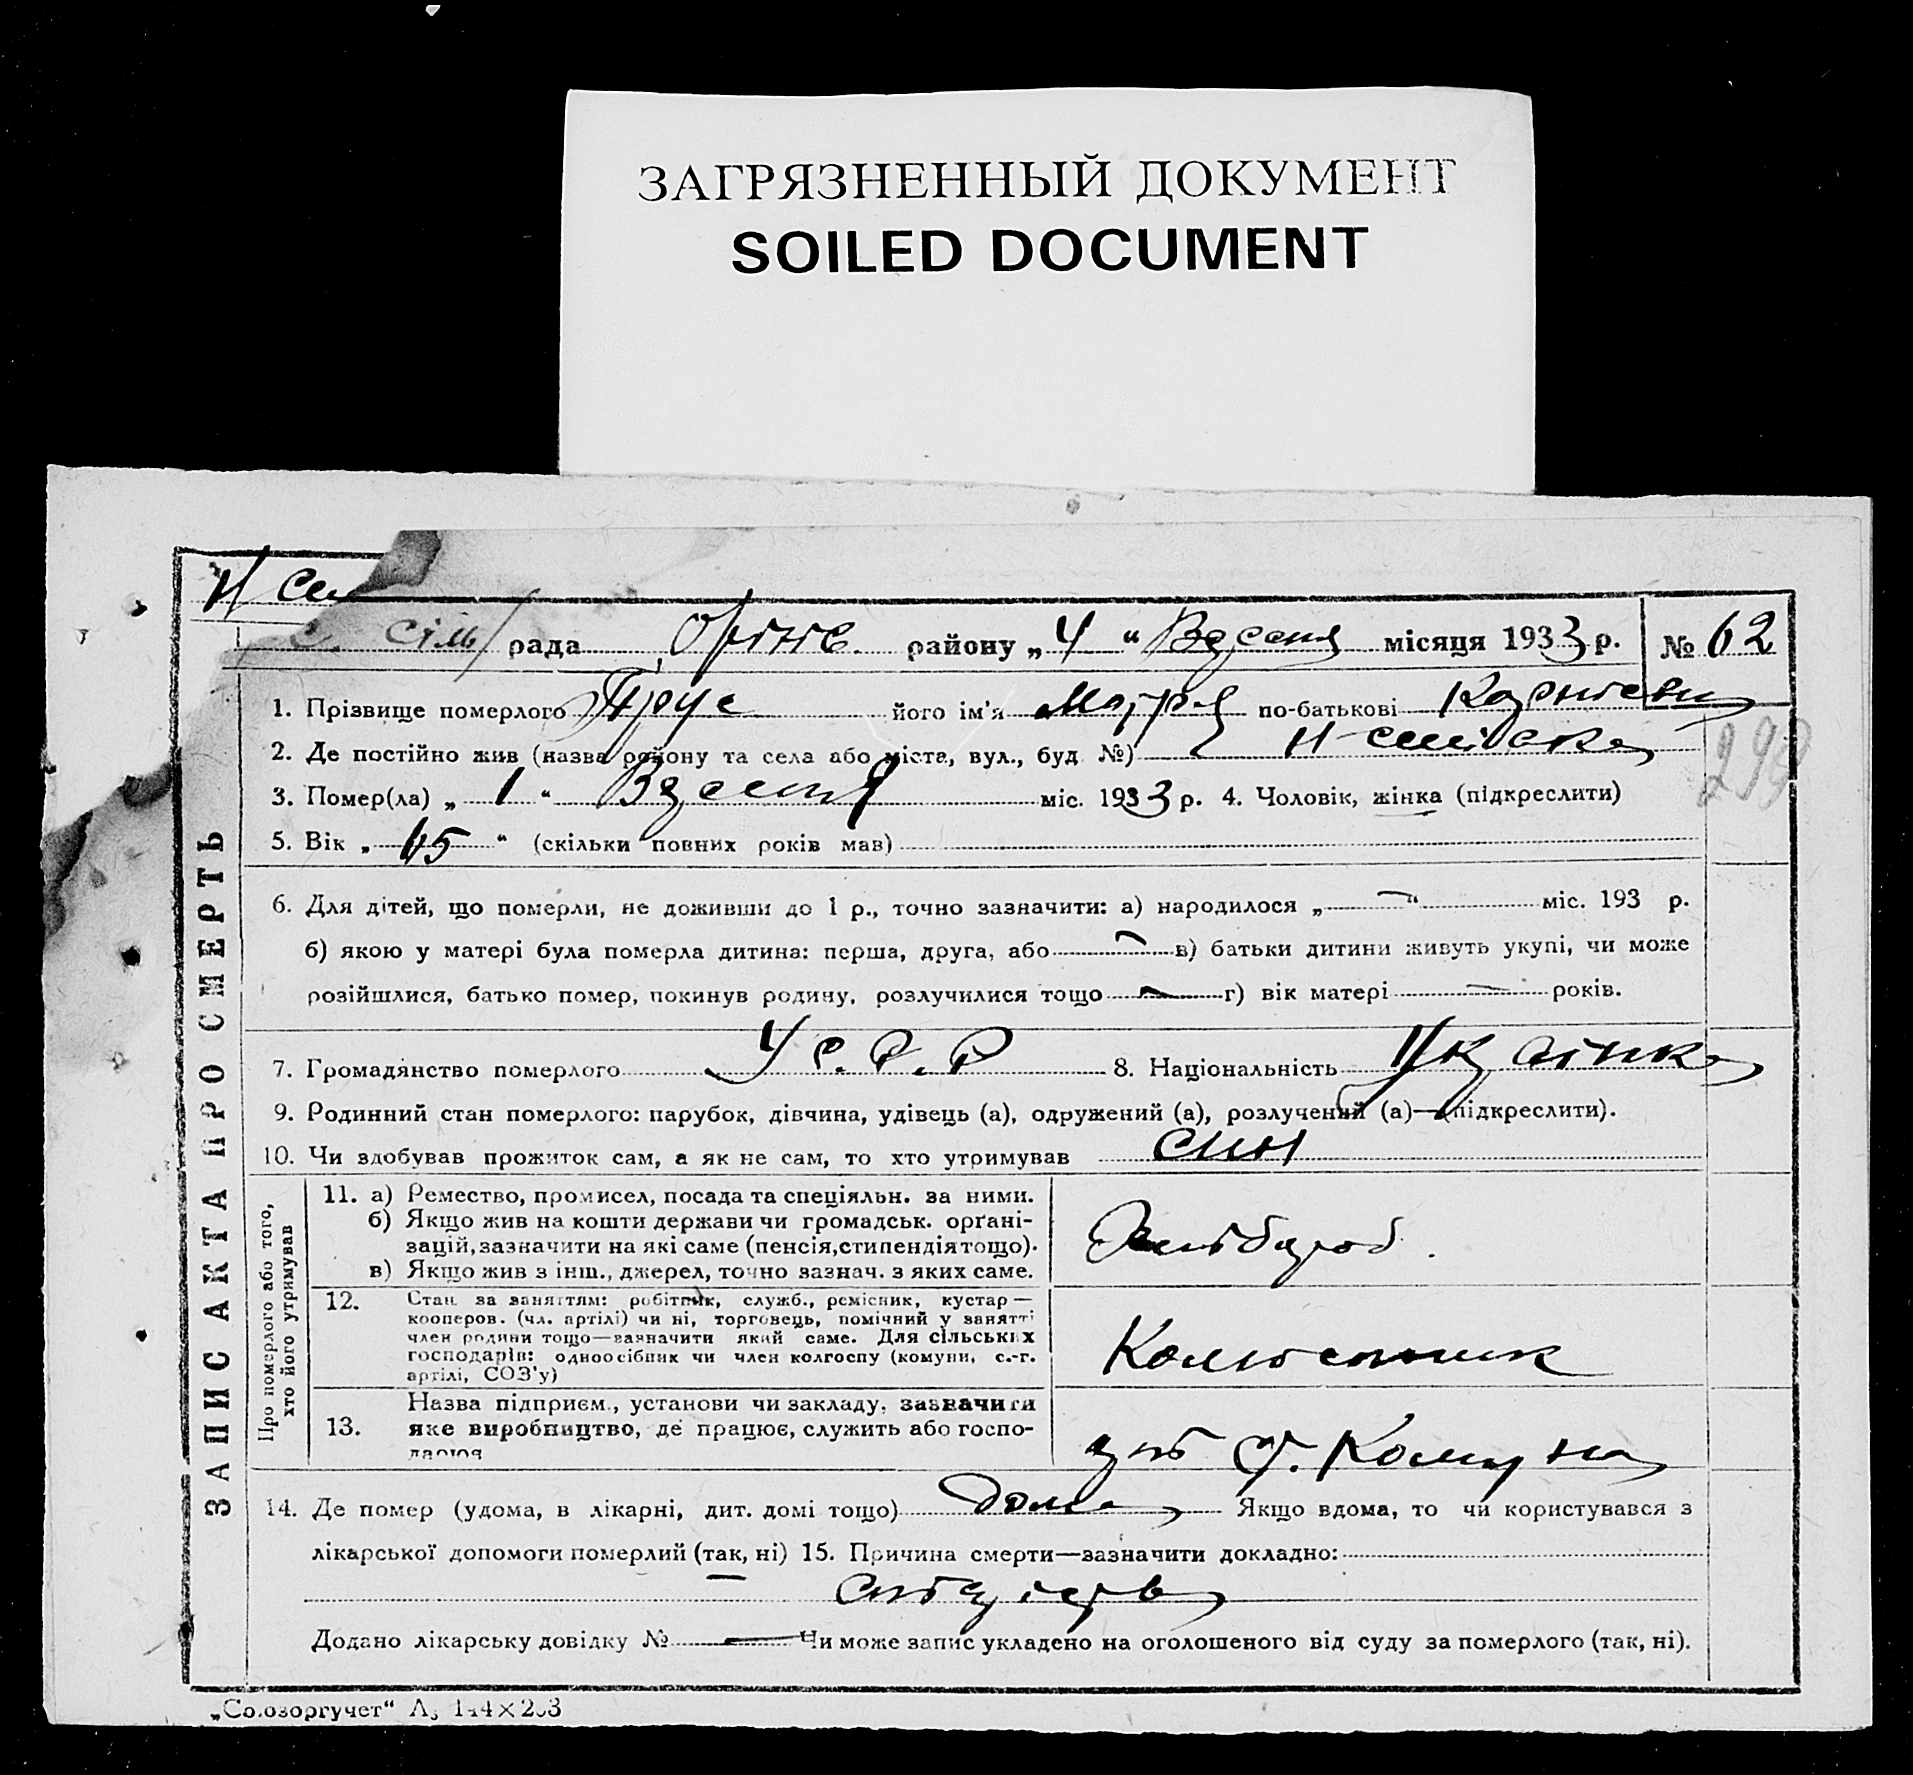 ЗАГРЯЗНЕННЫЙ ДОКУМЕНТ
SOILED DOCUMENT
ЗАПИС АКТА ПРО СМЕРТЬ
с. сіль рада району „4“ Вересня місяця 1933 р. № 62
1. Прізвище померлого його ім'я по-батькові
2. Де постійно жив (назва району та села або міста, вул., буд. №)
299
3. Помер(ла) „1“ Вересня міс. 1933 р. 4. Чоловік, жінка (підкреслити)
5. Вік „45“ (скільки повних років мав)
6. Для дітей, що померли, не доживши до 1 р., точно зазначити: а) народилося „—“ міс. 193 р.
б) якою у матері була померла дитина: перша, друга, або — в) батьки дитини живуть укупі, чи може
розійшлися, батько помер, покинув родину, розлучилися тощо — г) вік матері — років.
7. Громадянство померлого У С.Р.Р 8. Національність Українка
9. Родинний стан померлого: парубок, дівчина, удівець (а), одружений (а), розлучений (а)—(підкреслити).
10. Чи здобував прожиток сам, а як не сам, то хто утримував син
Про померлого або того, хто його утримував
11. а) Ремество, промисел, посада та спеціяльн. за ними.
б) Якщо жив на кошти держави чи громадськ. орґані-
зацій, зазначити на які саме (пенсія, стипендія тощо).
в) Якщо жив з інш., джерел, точно зазнач. з яких саме.
Хлібороб.
12. Стан за заняттям: робітник, служб., ремісник, кустар—
кооперов. (чл. артілі) чи ні, торговець, помічний у занятті
член родини тощо—зазначити який саме. Для сільських
господарів: одноосібник чи член колгоспу (комуни, с.-г.
артілі, СОЗ'у)
13. Назва підприєм., установи чи закладу, зазначити
яке виробництво, де працює, служить або госпо-
дарює
Комуна
14. Де помер (удома, в лікарні, дит. домі тощо) дома Якщо вдома, то чи користувався з
лікарської допомоги померлий (так, ні) 15. Причина смерти—зазначити докладно:
Додано лікарську довідку № — Чи може запис укладено на оголошеного від суду за померлого (так, ні).
„Союзоргучет“